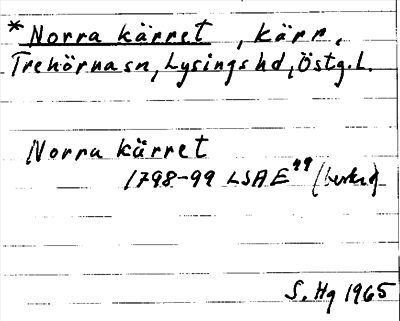 * Norra kärret, kärr,
Trehörna sn, Lysings hd, Östg. l.
Norra kärret
1798-99 LSA E 99
S. Hg 1965